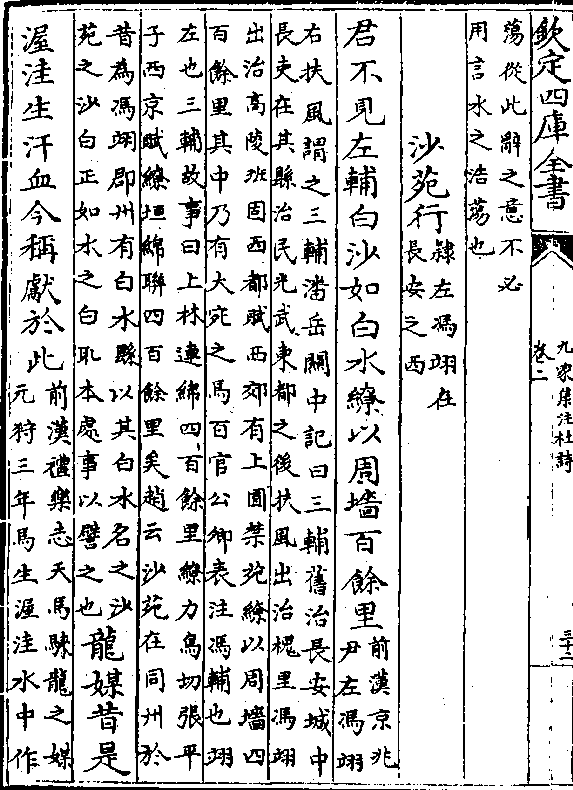 欽定四庫全書
九家集注杜詩
卷二
三十二
蕩從此辭之意不必
用言水之浩蕩也
沙苑行
隸左馮翊在
長安之西
君不見左輔白沙如白水繚以周墻百餘里
前漢京兆
尹左馮翊
右扶風謂之三輔潘岳關中記曰三輔舊治長安城中
長吏在其縣治民光武東都之後扶風出治槐里馮翊
出治高陵班固西都賦西郊有上囿禁苑繚以周墻四
百餘里其中乃有大宛之馬百官公卿表注馮輔也翊
左也三輔故事曰上林連綿四百餘里繚力鳥切張平
子西京賦繚垣綿聯四百餘里矣趙云沙苑在同州於
昔為馮翊郡州有白水縣以其白水名之沙
苑之沙白正如水之白耴本處事以譬之也
龍媒昔是
渥洼生汗血今稱獻於此
前漢禮樂志天馬騋龍之媒
元狩三年馬生渥洼水中作